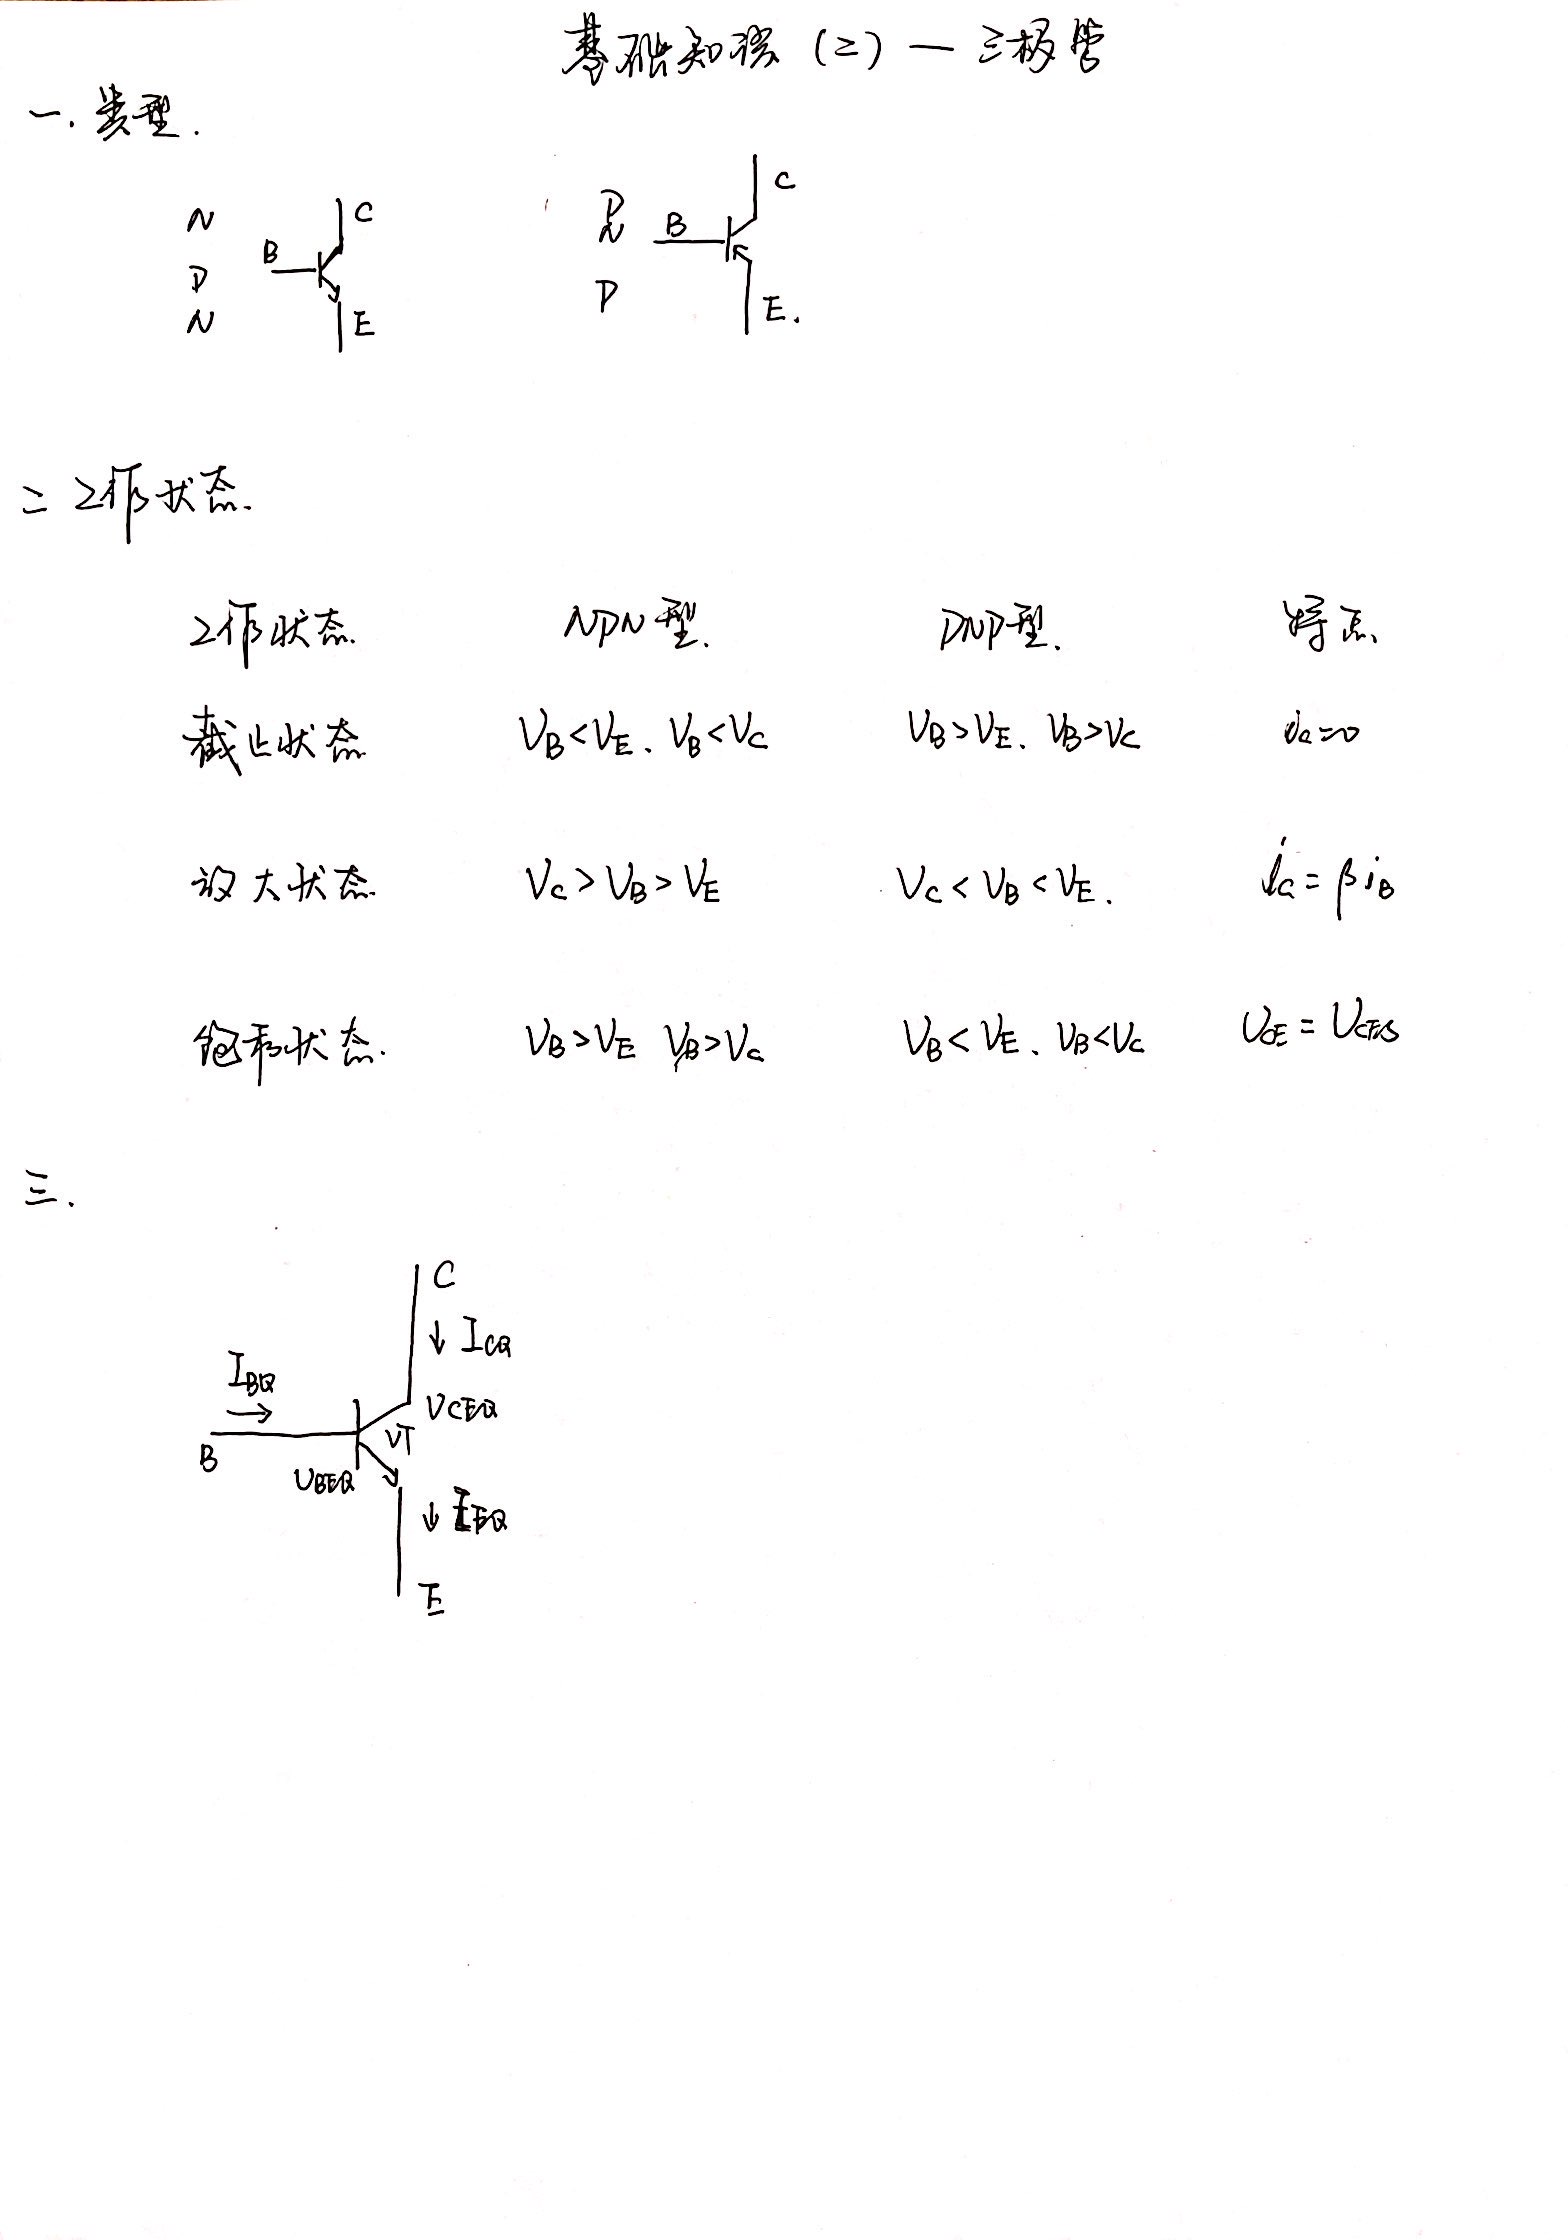 基础知识（二）— 三极管
一. 类型.
N P N B C E
P N P B C E.
二 工作状态.
工作状态. NPN型. PNP型. 特点.
截止状态 VB<VE、VB<VC VB>VE、VB>VC ic=0
放大状态. VC>VB>VE VC<VB<VE. ic=βiB
饱和状态. VB>VE VB>VC VB<VE、VB<VC UCE=UCES
三.
C
↓ ICQ
IBQ
→
UCEQ
B
VT
UBEQ
↓ IEQ
E